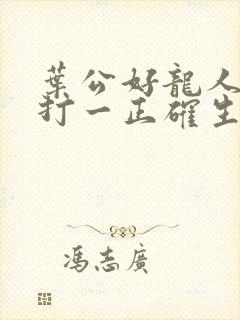 葉公好龍人
打一正確生
馮志廣